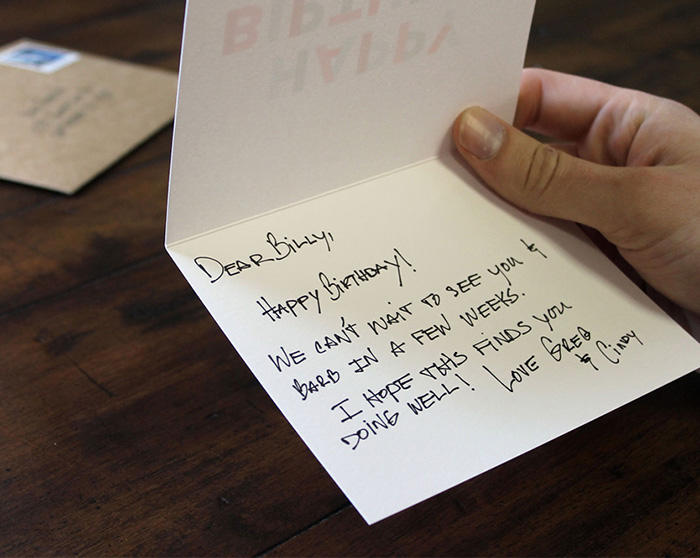 DEAR BILLY,
HAPPY BIRTHDAY!
WE CAN'T WAIT TO SEE YOU &
BARB IN A FEW WEEKS.
I HOPE THIS FINDS YOU
DOING WELL! LOVE GREG
& CINDY